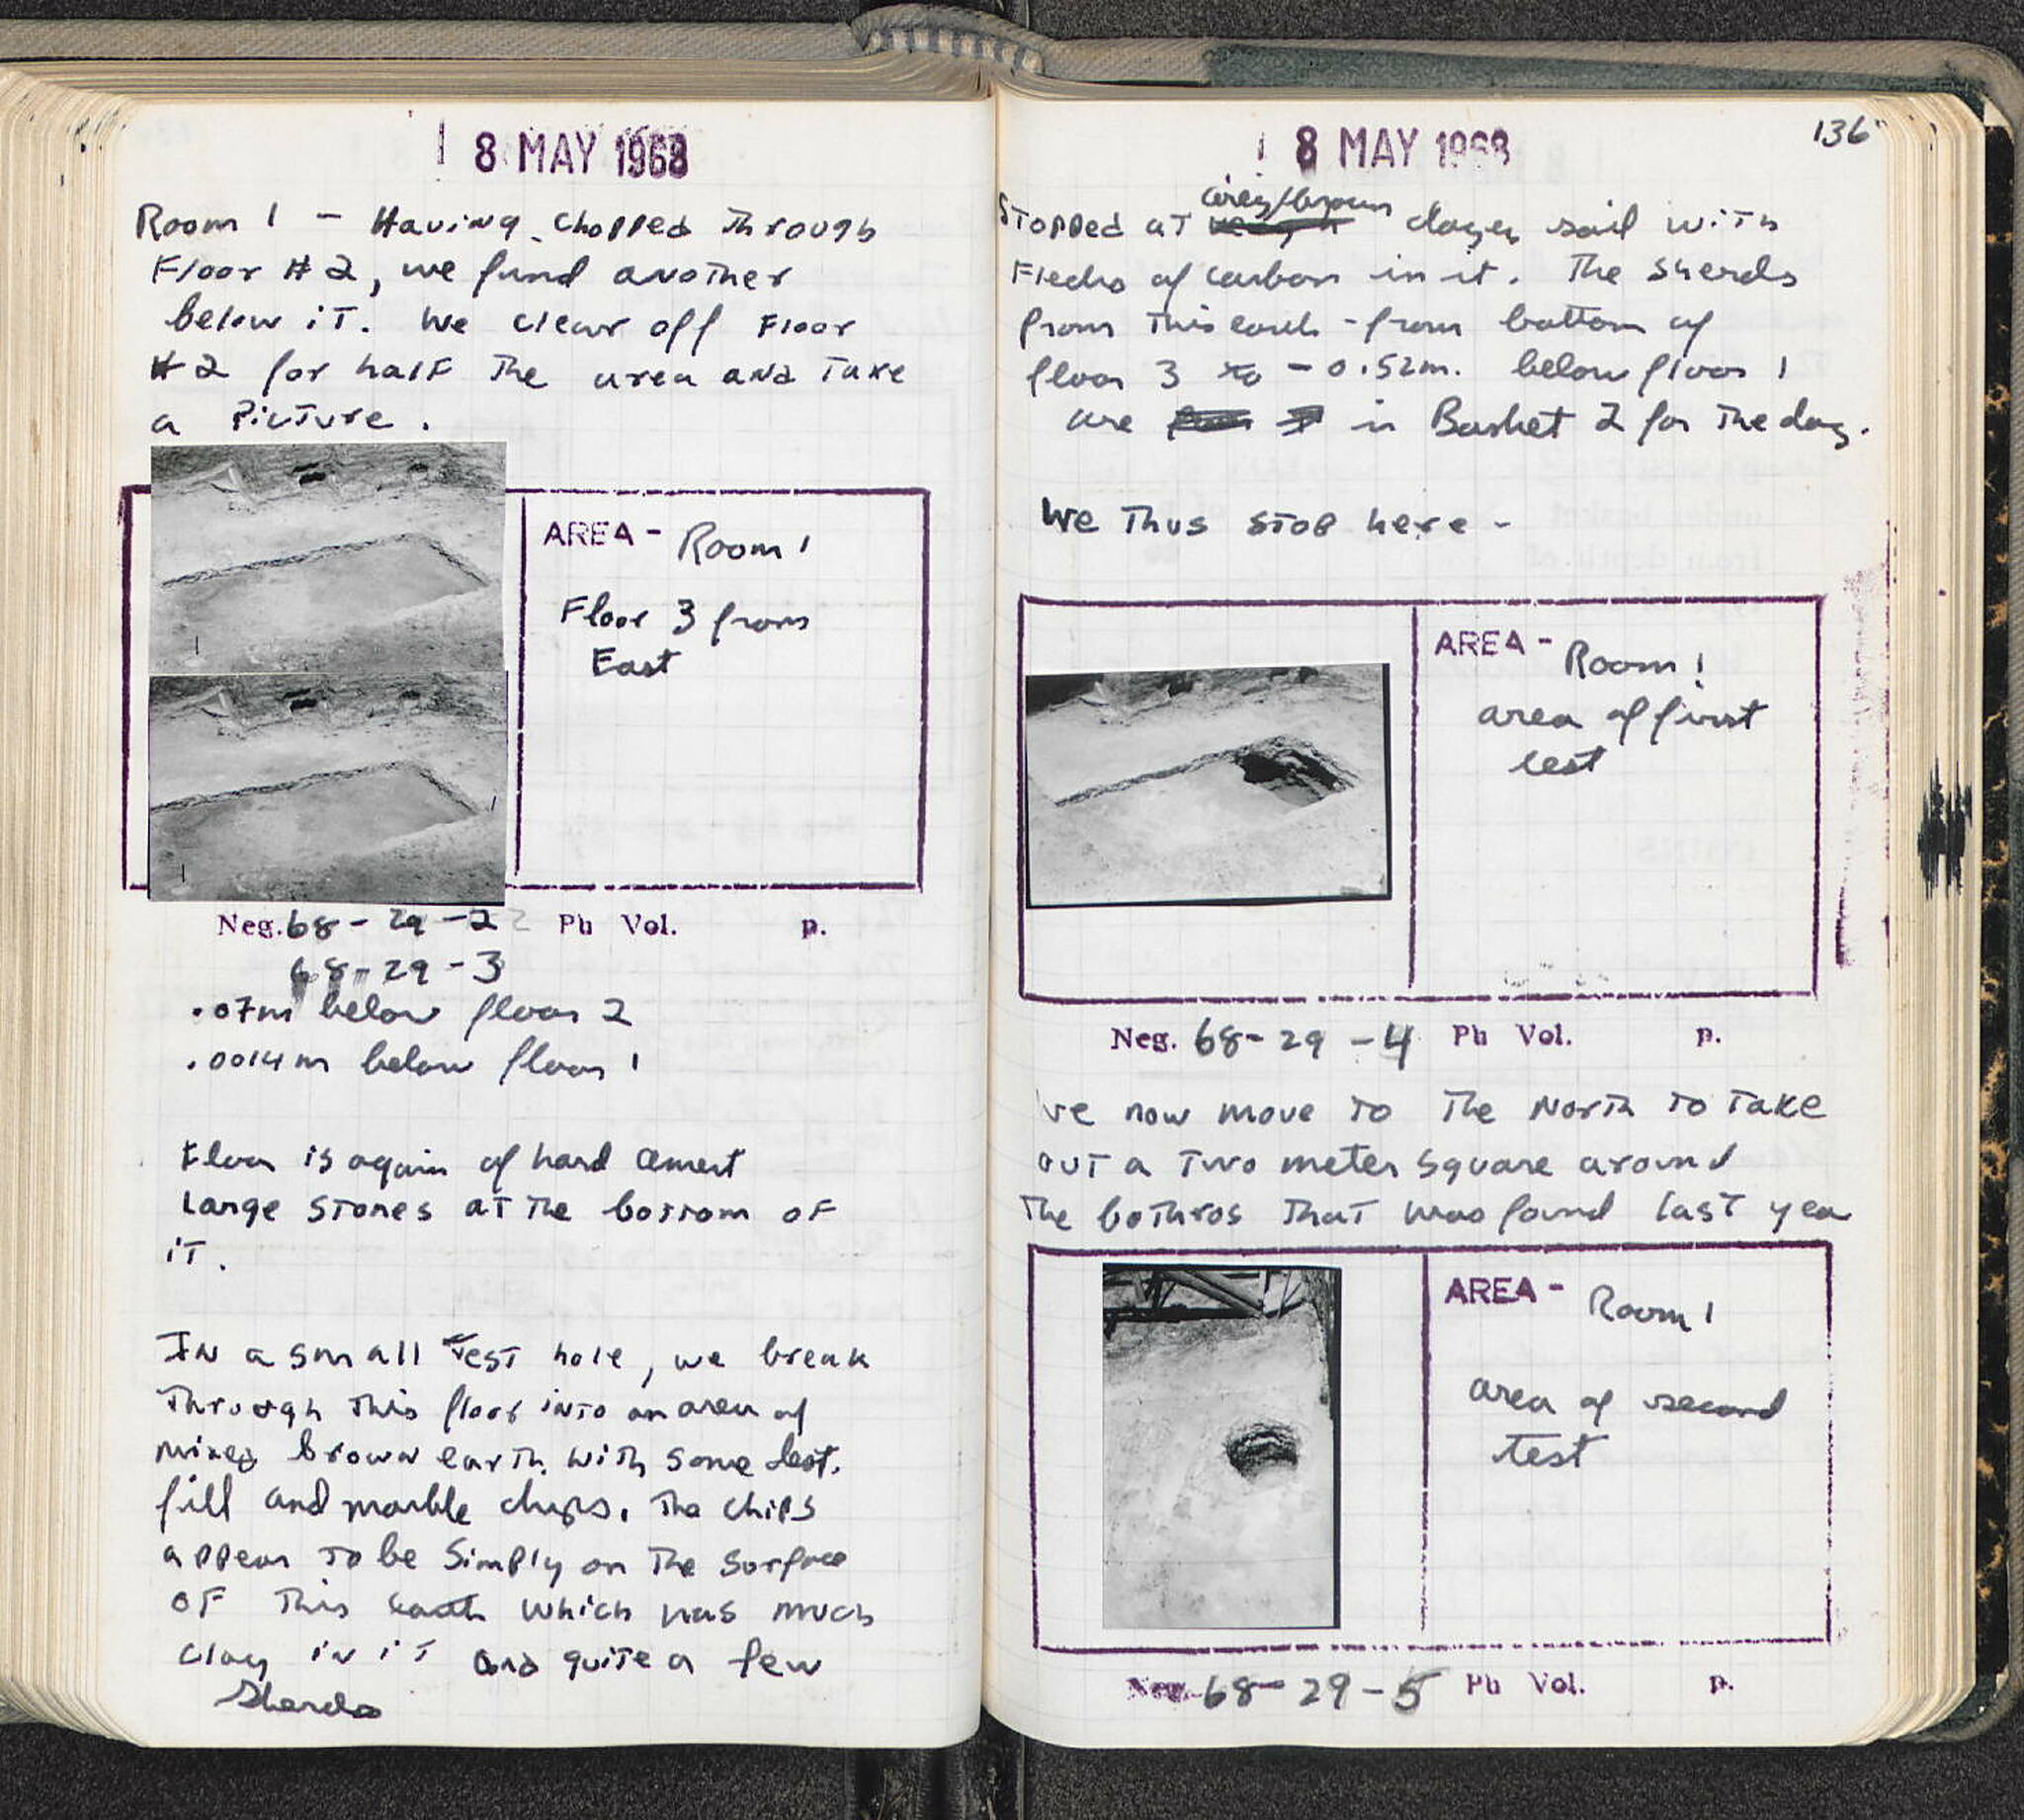 18 MAY 1968
Room 1 - Having chopped Through
Floor #2, we fund another
below iT. We clear off Floor
#2 for half The area and Take
a Picture.
AREA - Room 1
Floor 3 from
East
Neg. 68-29-2 Ph Vol. p.
68-29-3
.07m below floor 2
.0014m below floor 1
Floor is again of hard cement
Large stones at The bottom of
iT.
In a small Test hole, we break
Through This floor into an area of
mixed brown earth with some dest.
fill and marble chips. The chips
appear To be simply on The surface
of This earth which has much
clay in iT and quite a few
Sherds
18 MAY 1968
136
Stopped at Grey/brown clayey soil with
Flecks of carbon in it. The sherds
from This earth - from bottom of
floor 3 to -0.52m. below floor 1
are in Basket 2 for The day.
We Thus stop here -
AREA - Room 1
area of first
test
Neg. 68-29-4 Ph Vol. p.
We now move To The North To Take
out a Two meter square around
The bothros That was found last year
AREA - Room 1
area of second
test
Neg. 68-29-5 Ph Vol. p.